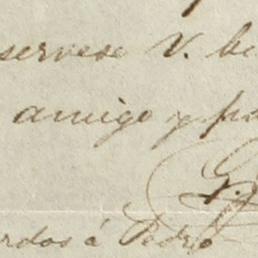 servese V. bu
amigo y pa
rdos á Pedro